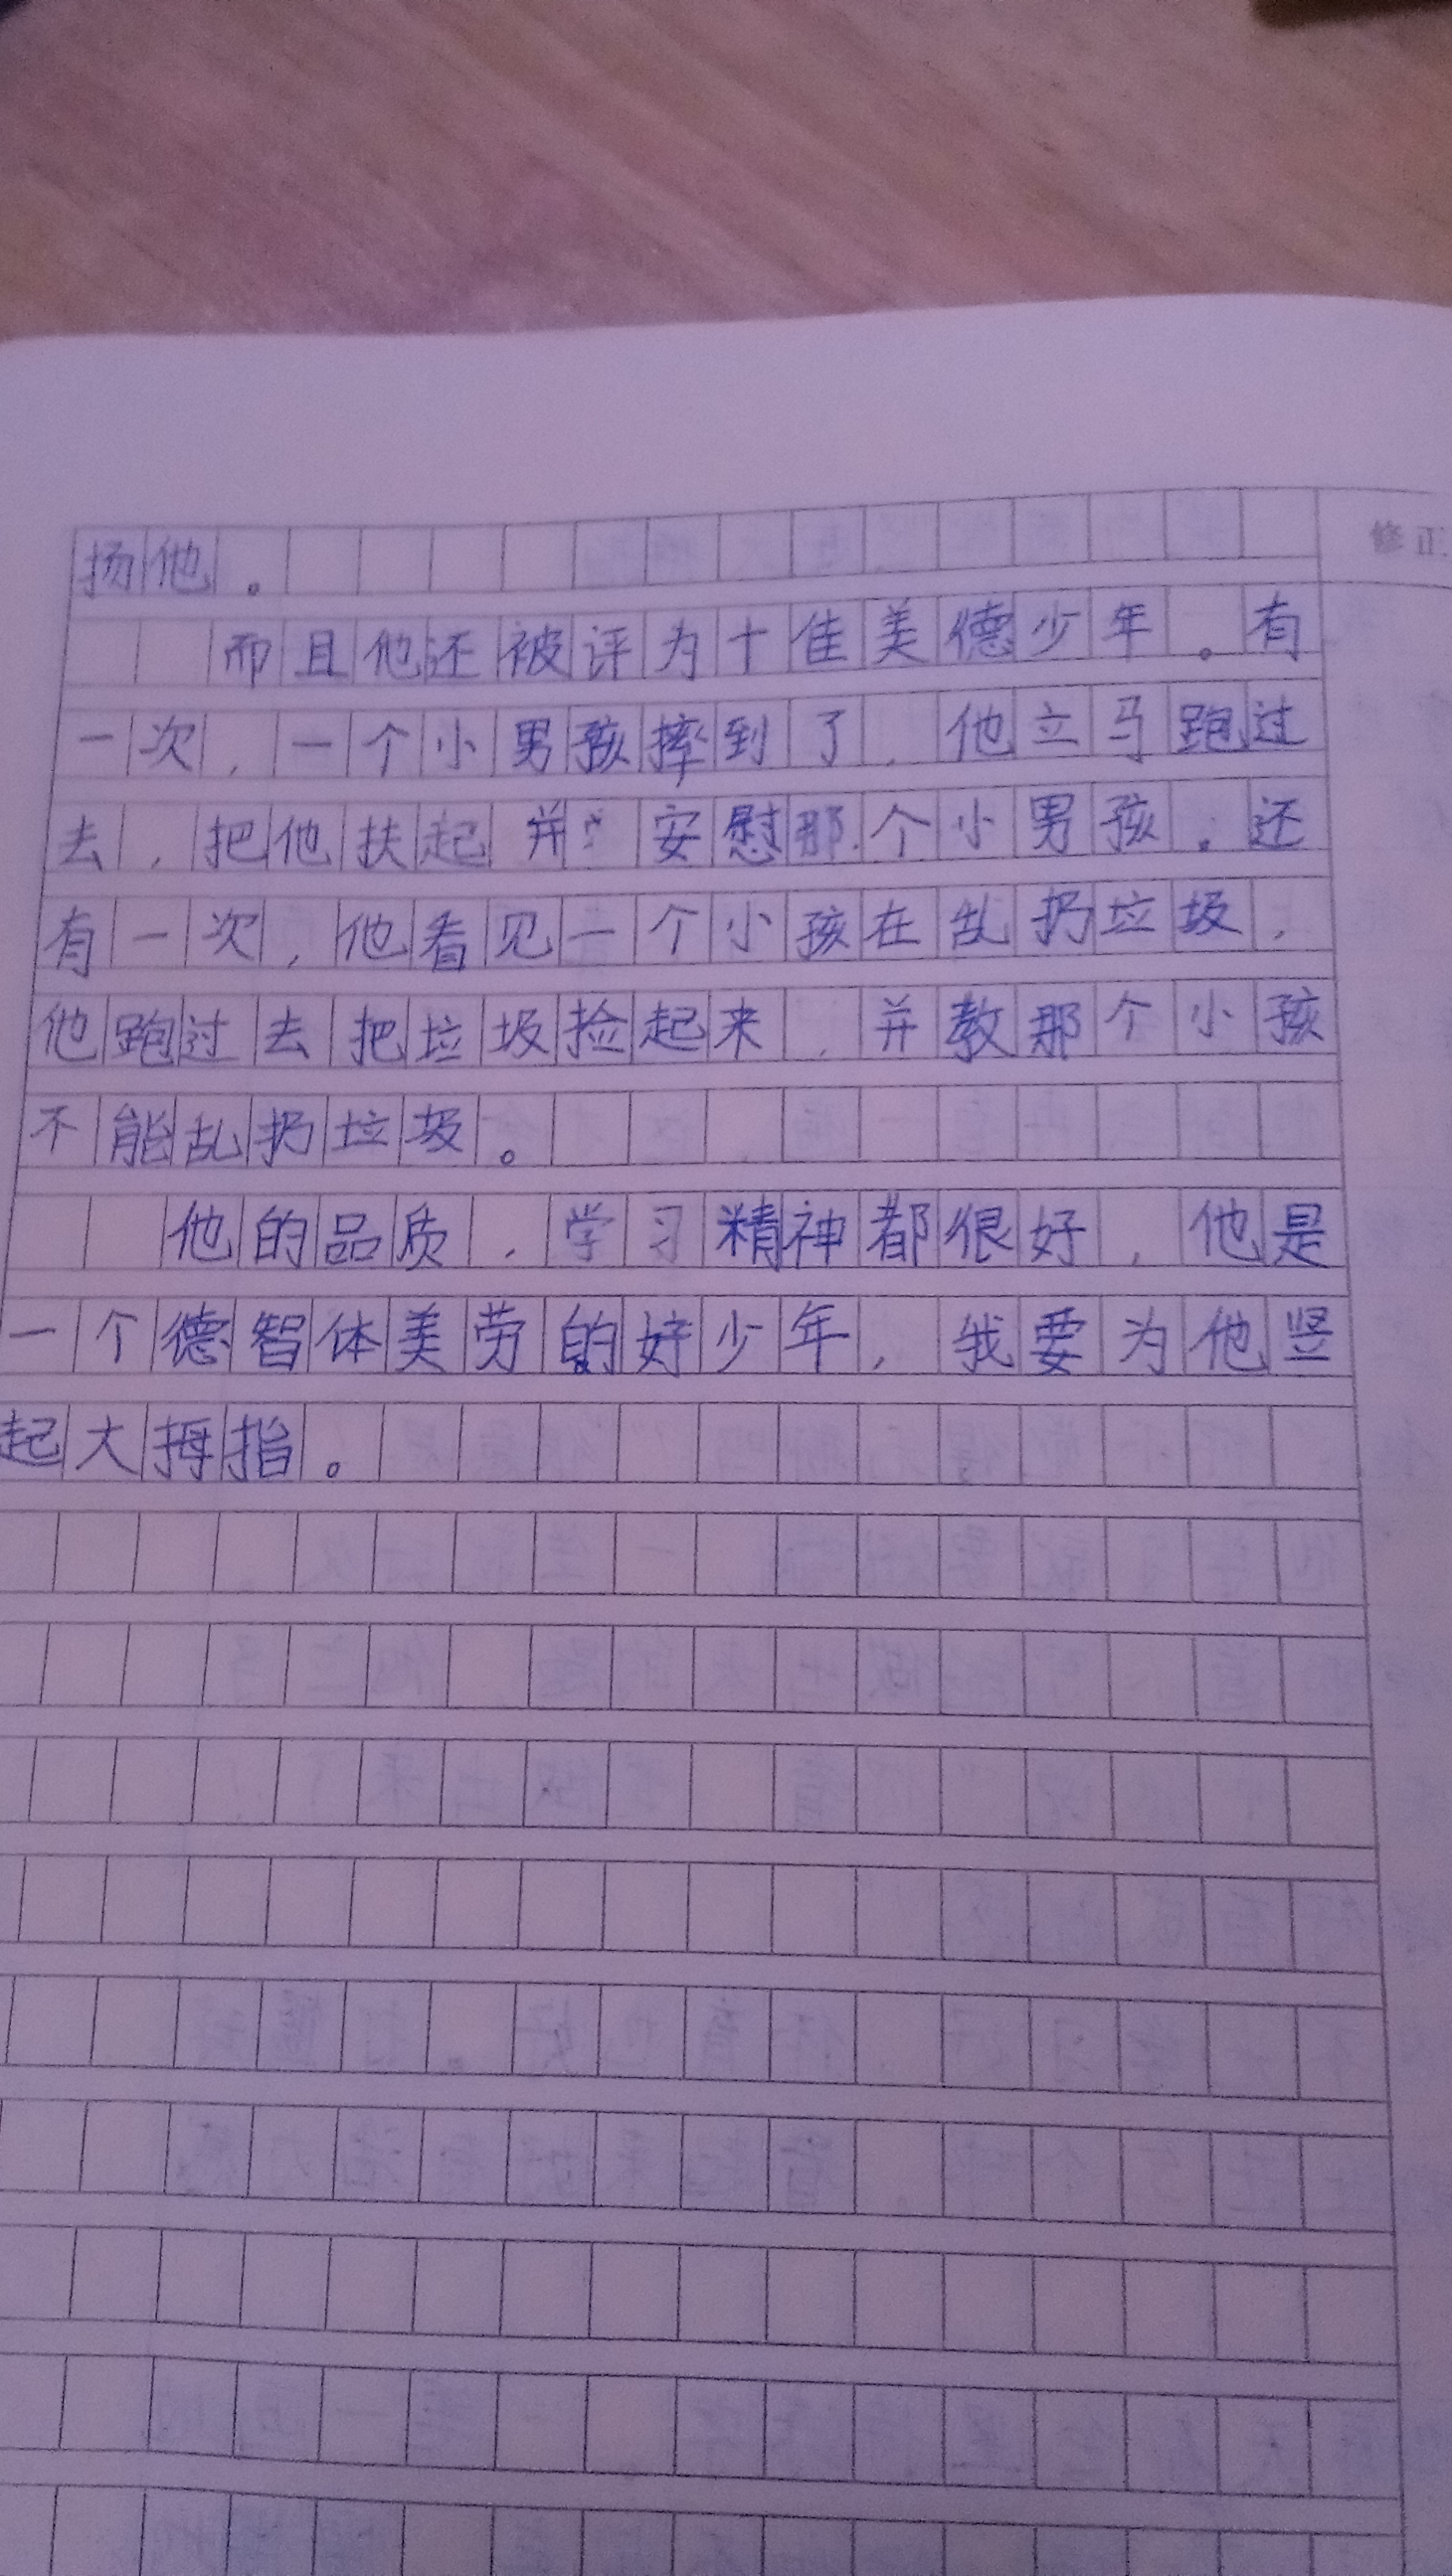 修正
扬他。
而且他还被评为十佳美德少年。有
一次,一个小男孩摔到了,他立马跑过
去,把他扶起并安慰那个小男孩。还
有一次,他看见一个小孩在乱扔垃圾,
他跑过去把垃圾捡起来,并教那个小孩
不能乱扔垃圾。
他的品质,学习精神都很好,他是
一个德智体美劳的好少年,我要为他竖
起大拇指。